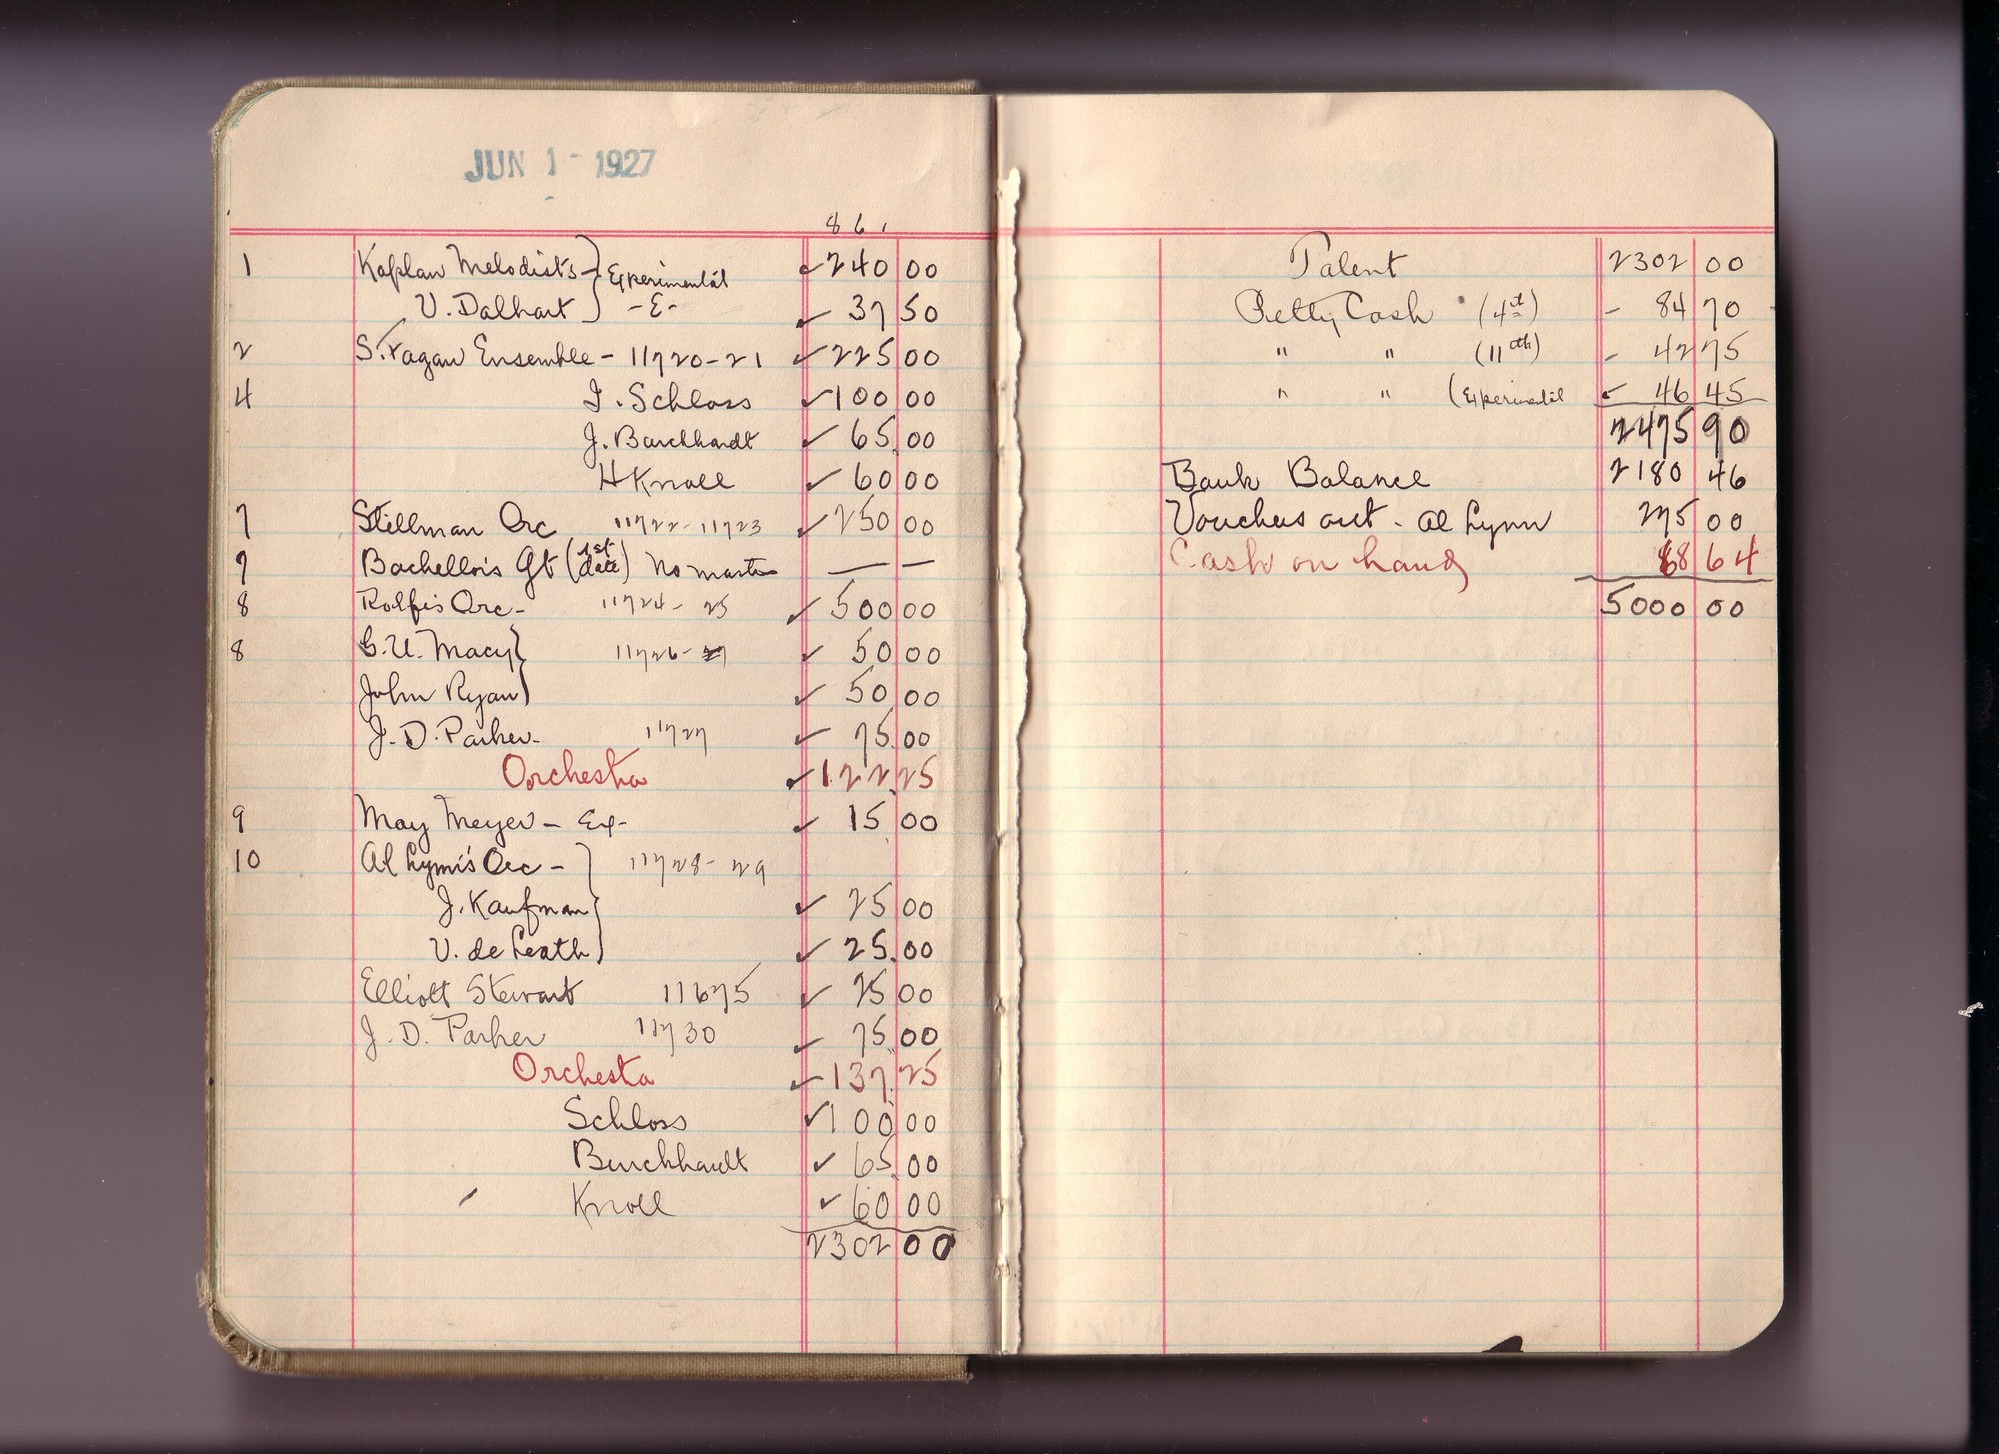 JUN 1 - 1927
861
1 Kaplan Melodists - Experimental ✓ 240 00
V. Dalhart -E- ✓ 37 50
2 S. Fagan Ensemble - 11720-21 ✓ 225 00
4 I. Schloss ✓ 100 00
J. Burckhardt ✓ 65 00
H Knoll ✓ 60 00
7 Stillman Orc 11722-11723 ✓ 250 00
7 Bachellois Qt (1st date) No master — —
8 Rolfe's Orc - 11724-25 ✓ 500 00
8 G. U. Macy 11726- ✓ 50 00
John Ryan ✓ 50 00
J. D. Parker - 11727 ✓ 75 00
Orchestra ✓ 122.25
9 May Meyer - Exp- ✓ 15 00
10 Al Lynn's Orc - 11728-29
J. Kaufman ✓ 25 00
V. de Leath ✓ 25.00
Elliott Stewart 11675 ✓ 25 00
J. D. Parker 11730 ✓ 75 00
Orchestra ✓ 137.25
Schloss ✓ 100 00
Burckhardt ✓ 65 00
Knoll ✓ 60 00
2302 00
Talent 2302 00
Petty Cash (4th) - 84 70
" " (11th) - 42 75
" " (Experimental ✓ 46 45
2475 90
Bank Balance 2180 46
Vouchers out - Al Lynn 275 00
Cash on hand 68 64
5000 00